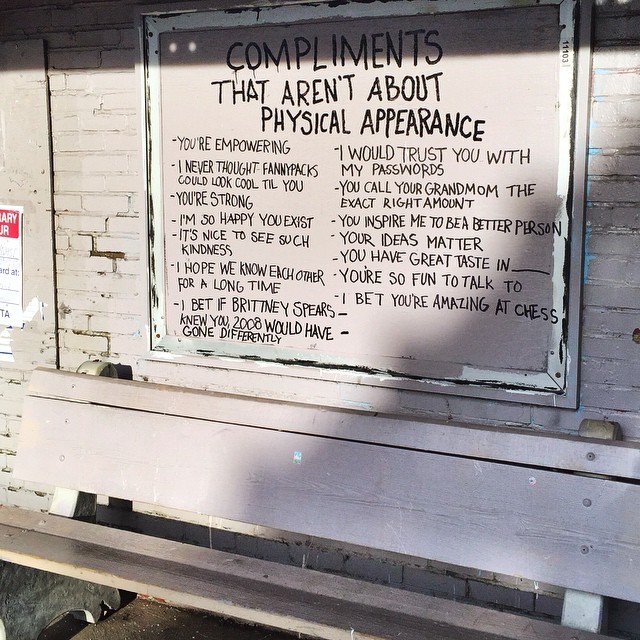 COMPLIMENTS
THAT AREN'T ABOUT
PHYSICAL APPEARANCE
-YOU'RE EMPOWERING
-I NEVER THOUGHT FANNYPACKS
COULD LOOK COOL TIL YOU
-YOU'RE STRONG
-I'M SO HAPPY YOU EXIST
-IT'S NICE TO SEE SUCH
KINDNESS
-I HOPE WE KNOW EACH OTHER
FOR A LONG TIME
-I BET IF BRITTNEY SPEARS
KNEW YOU, 2008 WOULD HAVE
GONE DIFFERENTLY
-I WOULD TRUST YOU WITH
MY PASSWORDS
-YOU CALL YOUR GRANDMOM THE
EXACT RIGHT AMOUNT
-YOU INSPIRE ME TO BE A BETTER PERSON
-YOUR IDEAS MATTER
-YOU HAVE GREAT TASTE IN____
-YOU'RE SO FUN TO TALK TO
-I BET YOU'RE AMAZING AT CHESS
-
-
11031
ARY
UR
ard at:
TA